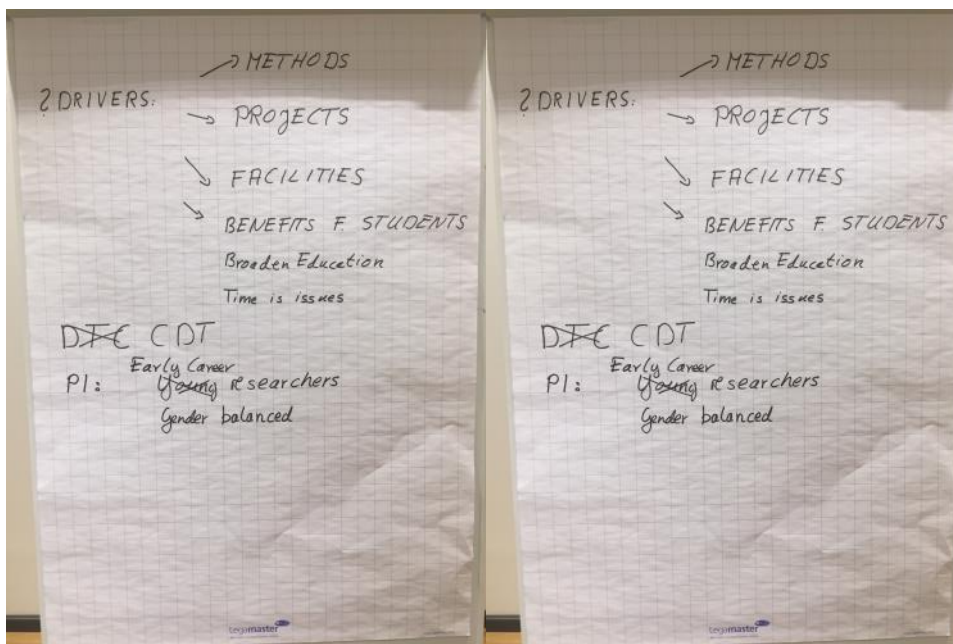 → METHODS
? DRIVERS:
→ PROJECTS
→ FACILITIES
→ BENEFITS F. STUDENTS
Broaden Education
Time is issues
DTC CDT
Early Career
PI: Young researchers
Gender balanced
legamaster
→ METHODS
? DRIVERS:
→ PROJECTS
→ FACILITIES
→ BENEFITS F. STUDENTS
Broaden Education
Time is issues
DTC CDT
Early Career
PI: Young researchers
Gender balanced
legamaster